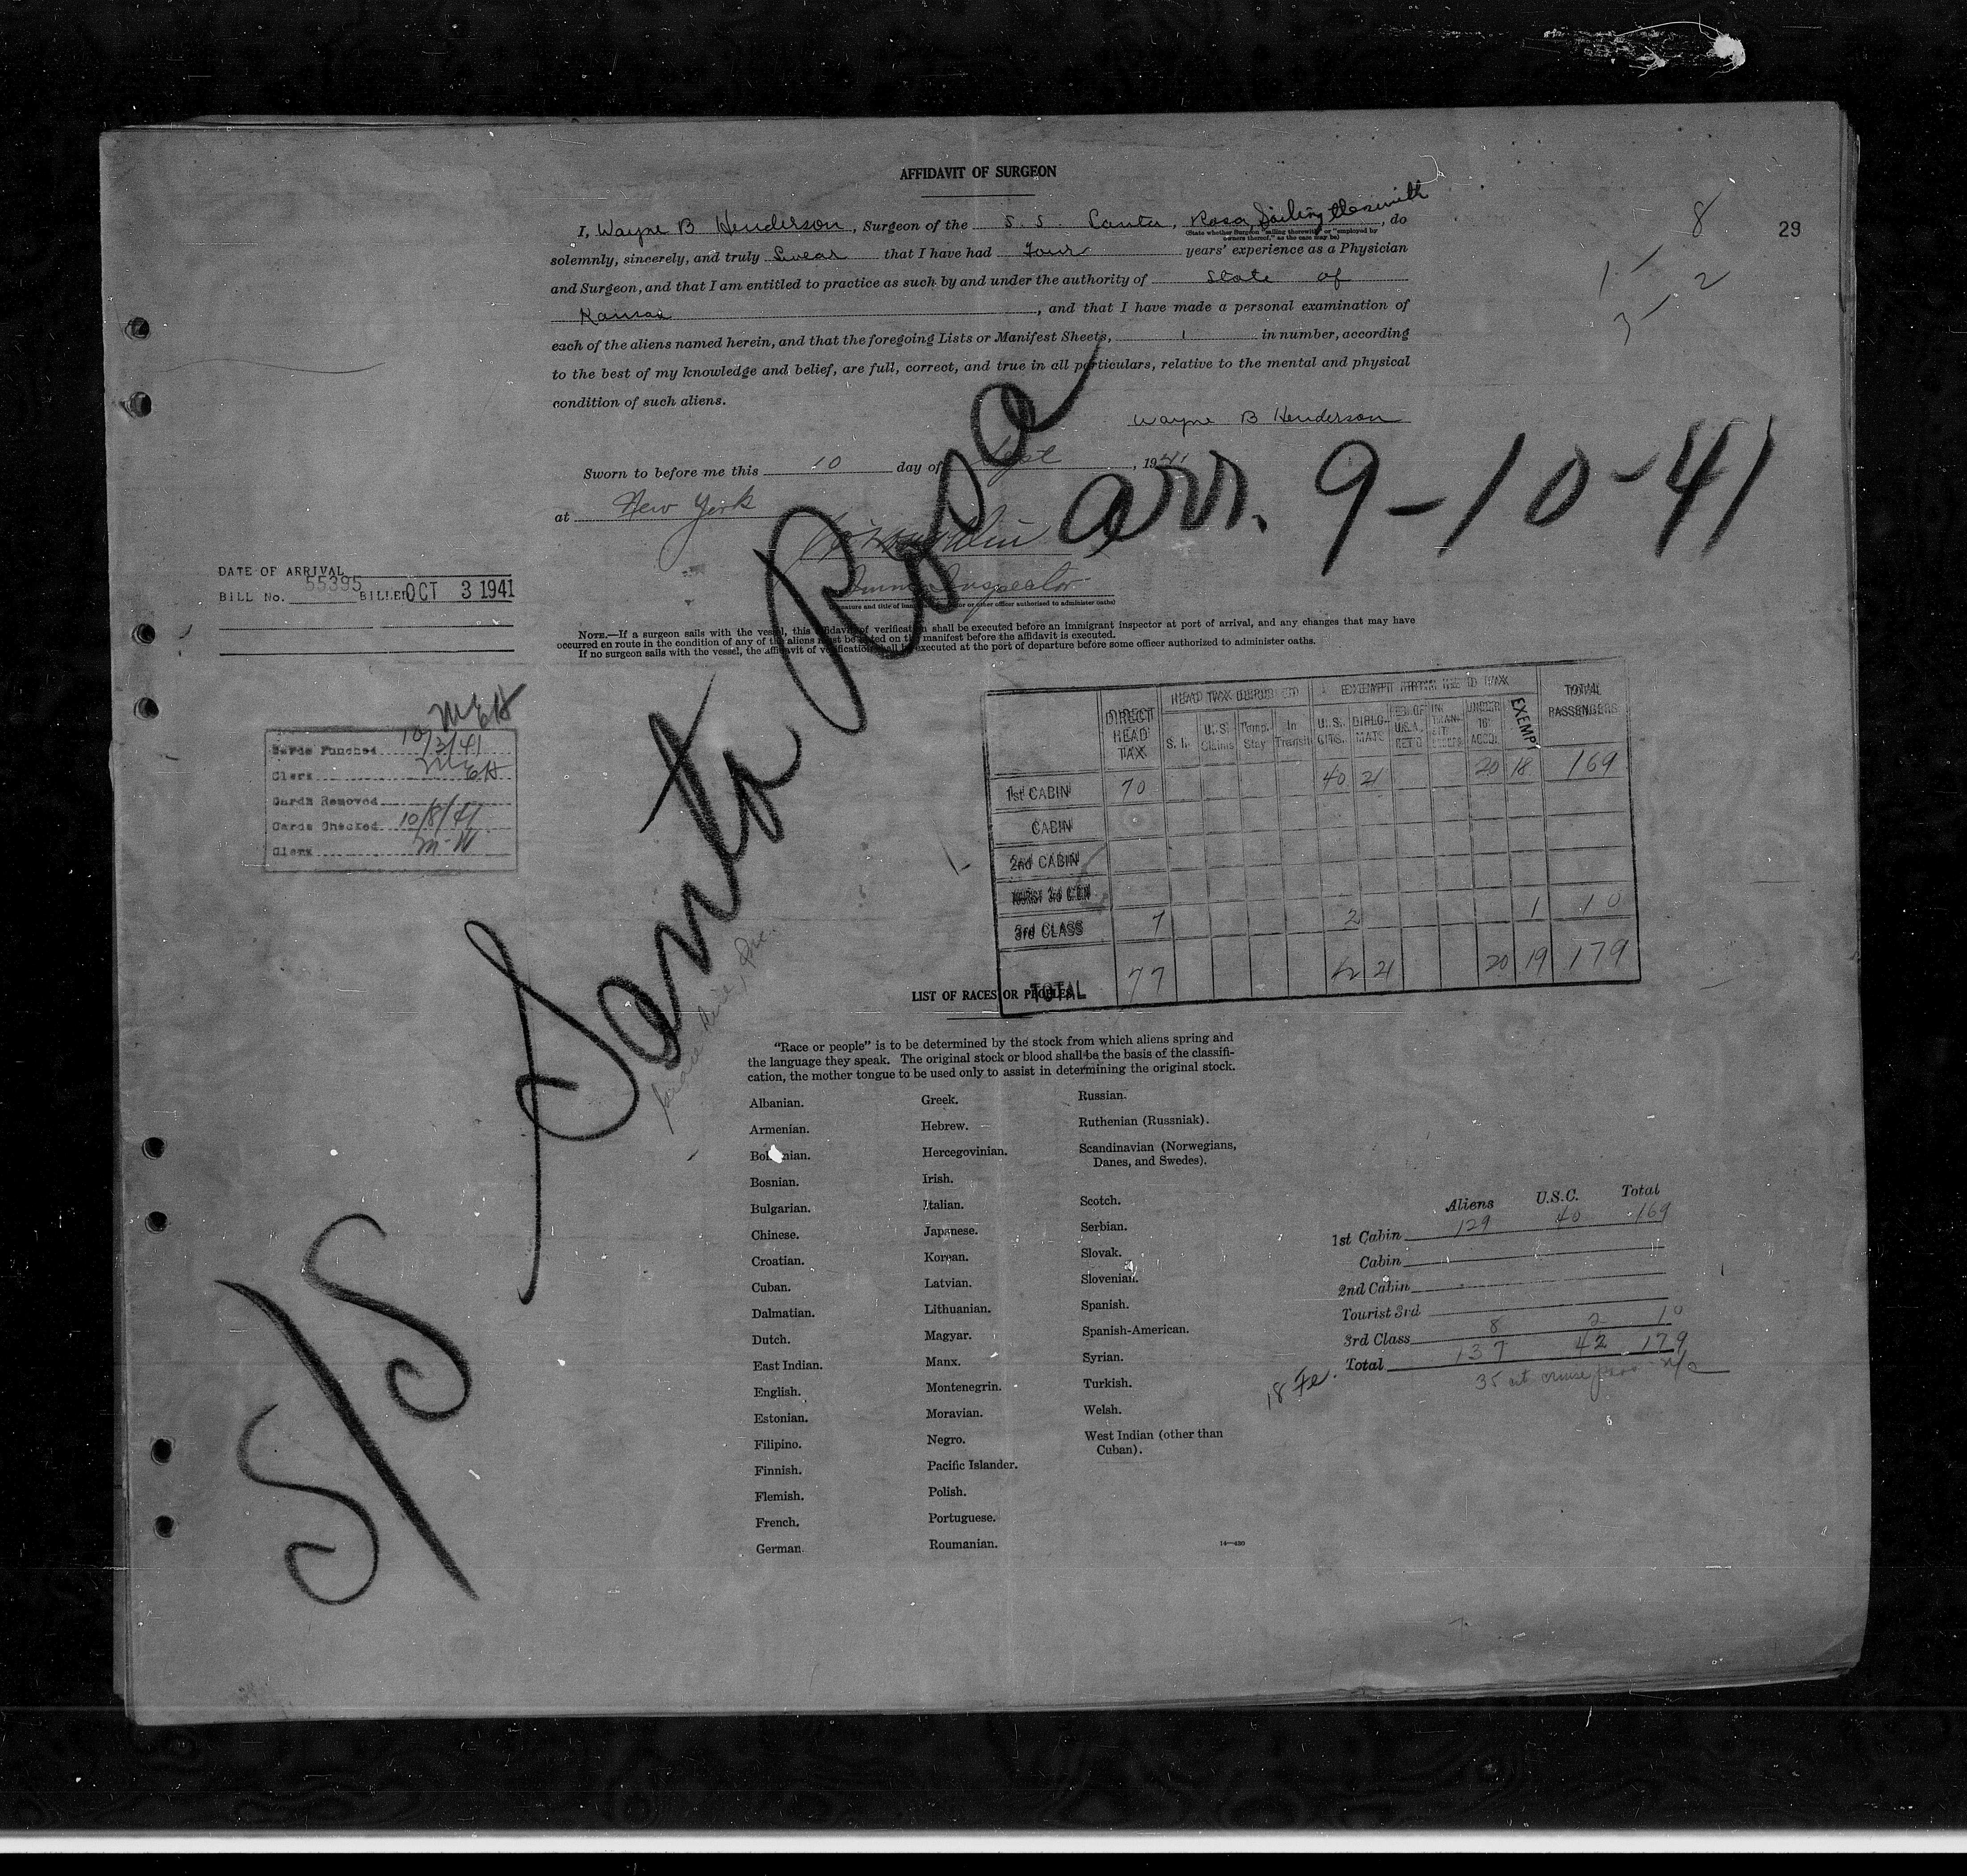 AFFIDAVIT OF SURGEON
29
8
1 2
3
I, Wayne B Henderson, Surgeon of the S. S. Santa, Rosa, Sailing therewith, do
(State whether Surgeon "sailing therewith" or "employed by
owners thereof," as the case may be)
solemnly, sincerely, and truly Swear that I have had Four years' experience as a Physician
and Surgeon, and that I am entitled to practice as such by and under the authority of State of
Kansas, and that I have made a personal examination of
each of the aliens named herein, and that the foregoing Lists or Manifest Sheets, 1 in number, according
to the best of my knowledge and belief, are full, correct, and true in all particulars, relative to the mental and physical
condition of such aliens.
Wayne B Henderson
Sworn to before me this 10 day of Sept, 1941
at New York
Immig Inspector
S/S Santa Rosa arr. 9-10-41
DATE OF ARRIVAL
BILL No. 55395 BILLED OCT 3 1941
NOTE.—If a surgeon sails with the vessel, this affidavit of verification shall be executed before an immigrant inspector at port of arrival, and any changes that may have
occurred en route in the condition of any of the aliens must be noted on the manifest before the affidavit is executed.
If no surgeon sails with the vessel, the affidavit of verification shall be executed at the port of departure before some officer authorized to administer oaths.
MEH
Cards Punched 10/3/41
Clerk MEH
Cards Removed
Cards Checked 10/8/41
Clerk M-W
DIRECT HEAD TAX
S. I. U. S. Claims Temp. Stay In Transit
EXEMPT FROM HEAD TAX
U. S. CITS. DIPLO-MATS UNDER 16 ACCOM. EXEMPT
TOTAL PASSENGERS
1st CABIN 70 40 21 20 18 169
CABIN
2nd CABIN
TOURIST 3rd CABIN
3rd CLASS 7 2 1 10
TOTAL 77 42 21 20 19 179
LIST OF RACES OR PEOPLES
"Race or people" is to be determined by the stock from which aliens spring and
the language they speak. The original stock or blood shall be the basis of the classifi-
cation, the mother tongue to be used only to assist in determining the original stock.
Albanian.
Armenian.
Bohemian.
Bosnian.
Bulgarian.
Chinese.
Croatian.
Cuban.
Dalmatian.
Dutch.
East Indian.
English.
Estonian.
Filipino.
Finnish.
Flemish.
French.
German.
Greek.
Hebrew.
Hercegovinian.
Irish.
Italian.
Japanese.
Korean.
Latvian.
Lithuanian.
Magyar.
Manx.
Montenegrin.
Moravian.
Negro.
Pacific Islander.
Polish.
Portuguese.
Roumanian.
Russian.
Ruthenian (Russniak).
Scandinavian (Norwegians,
Danes, and Swedes).
Scotch.
Serbian.
Slovak.
Slovenian.
Spanish.
Spanish-American.
Syrian.
Turkish.
Welsh.
West Indian (other than
Cuban).
14—430
Aliens U.S.C. Total
1st Cabin 129 40 169
Cabin
2nd Cabin
Tourist 3rd
3rd Class 8 2 10
Total 137 42 179
18 Fe.
35 cit cruise pass